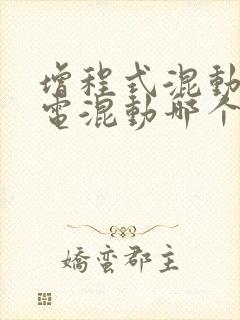 增程式混動
電混動哪个
嬌蛮郡主